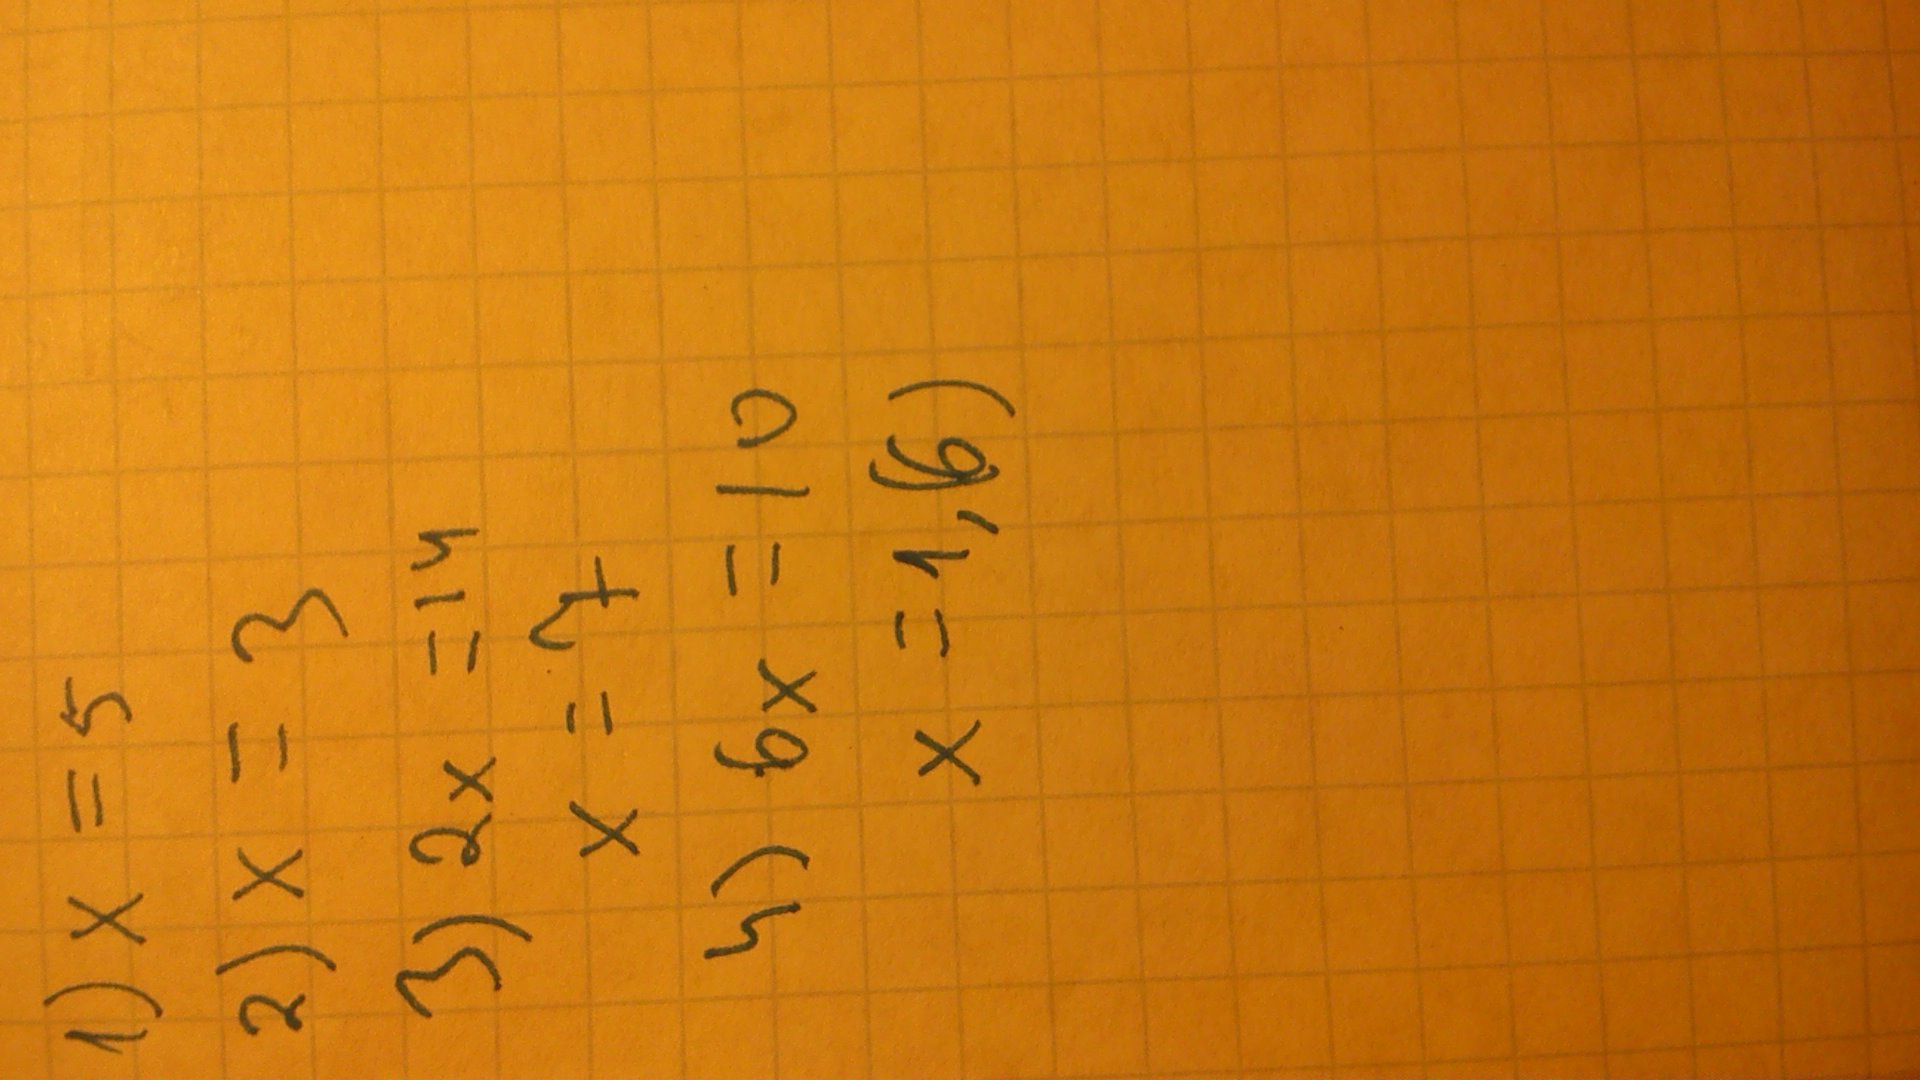 1) x = 5
2) x = 3
3) 2x = 14
x = 7
4) 6x = 10
x = 1,(6)